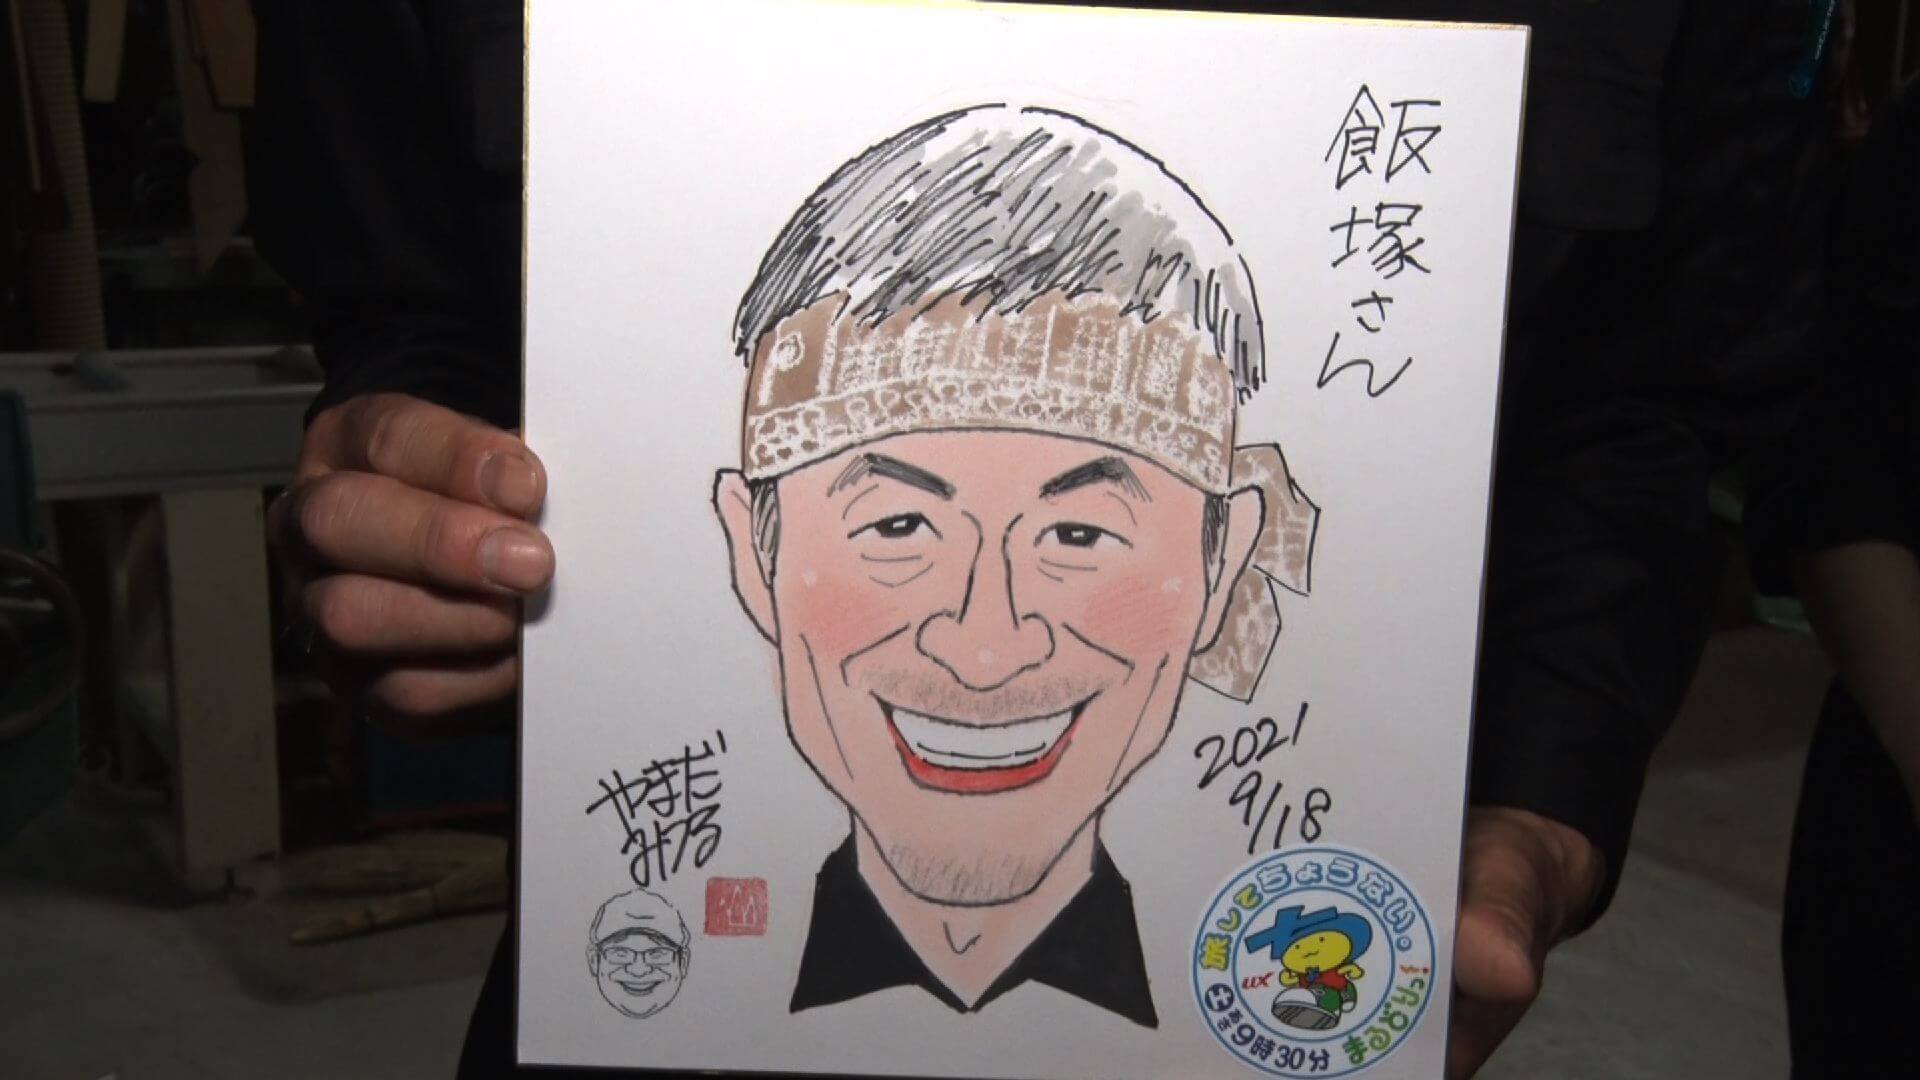 飯塚さん
やまだ
みつる
2021
9/18
旅してちょうない。
まるどりっ!
UX
土あさ9時30分